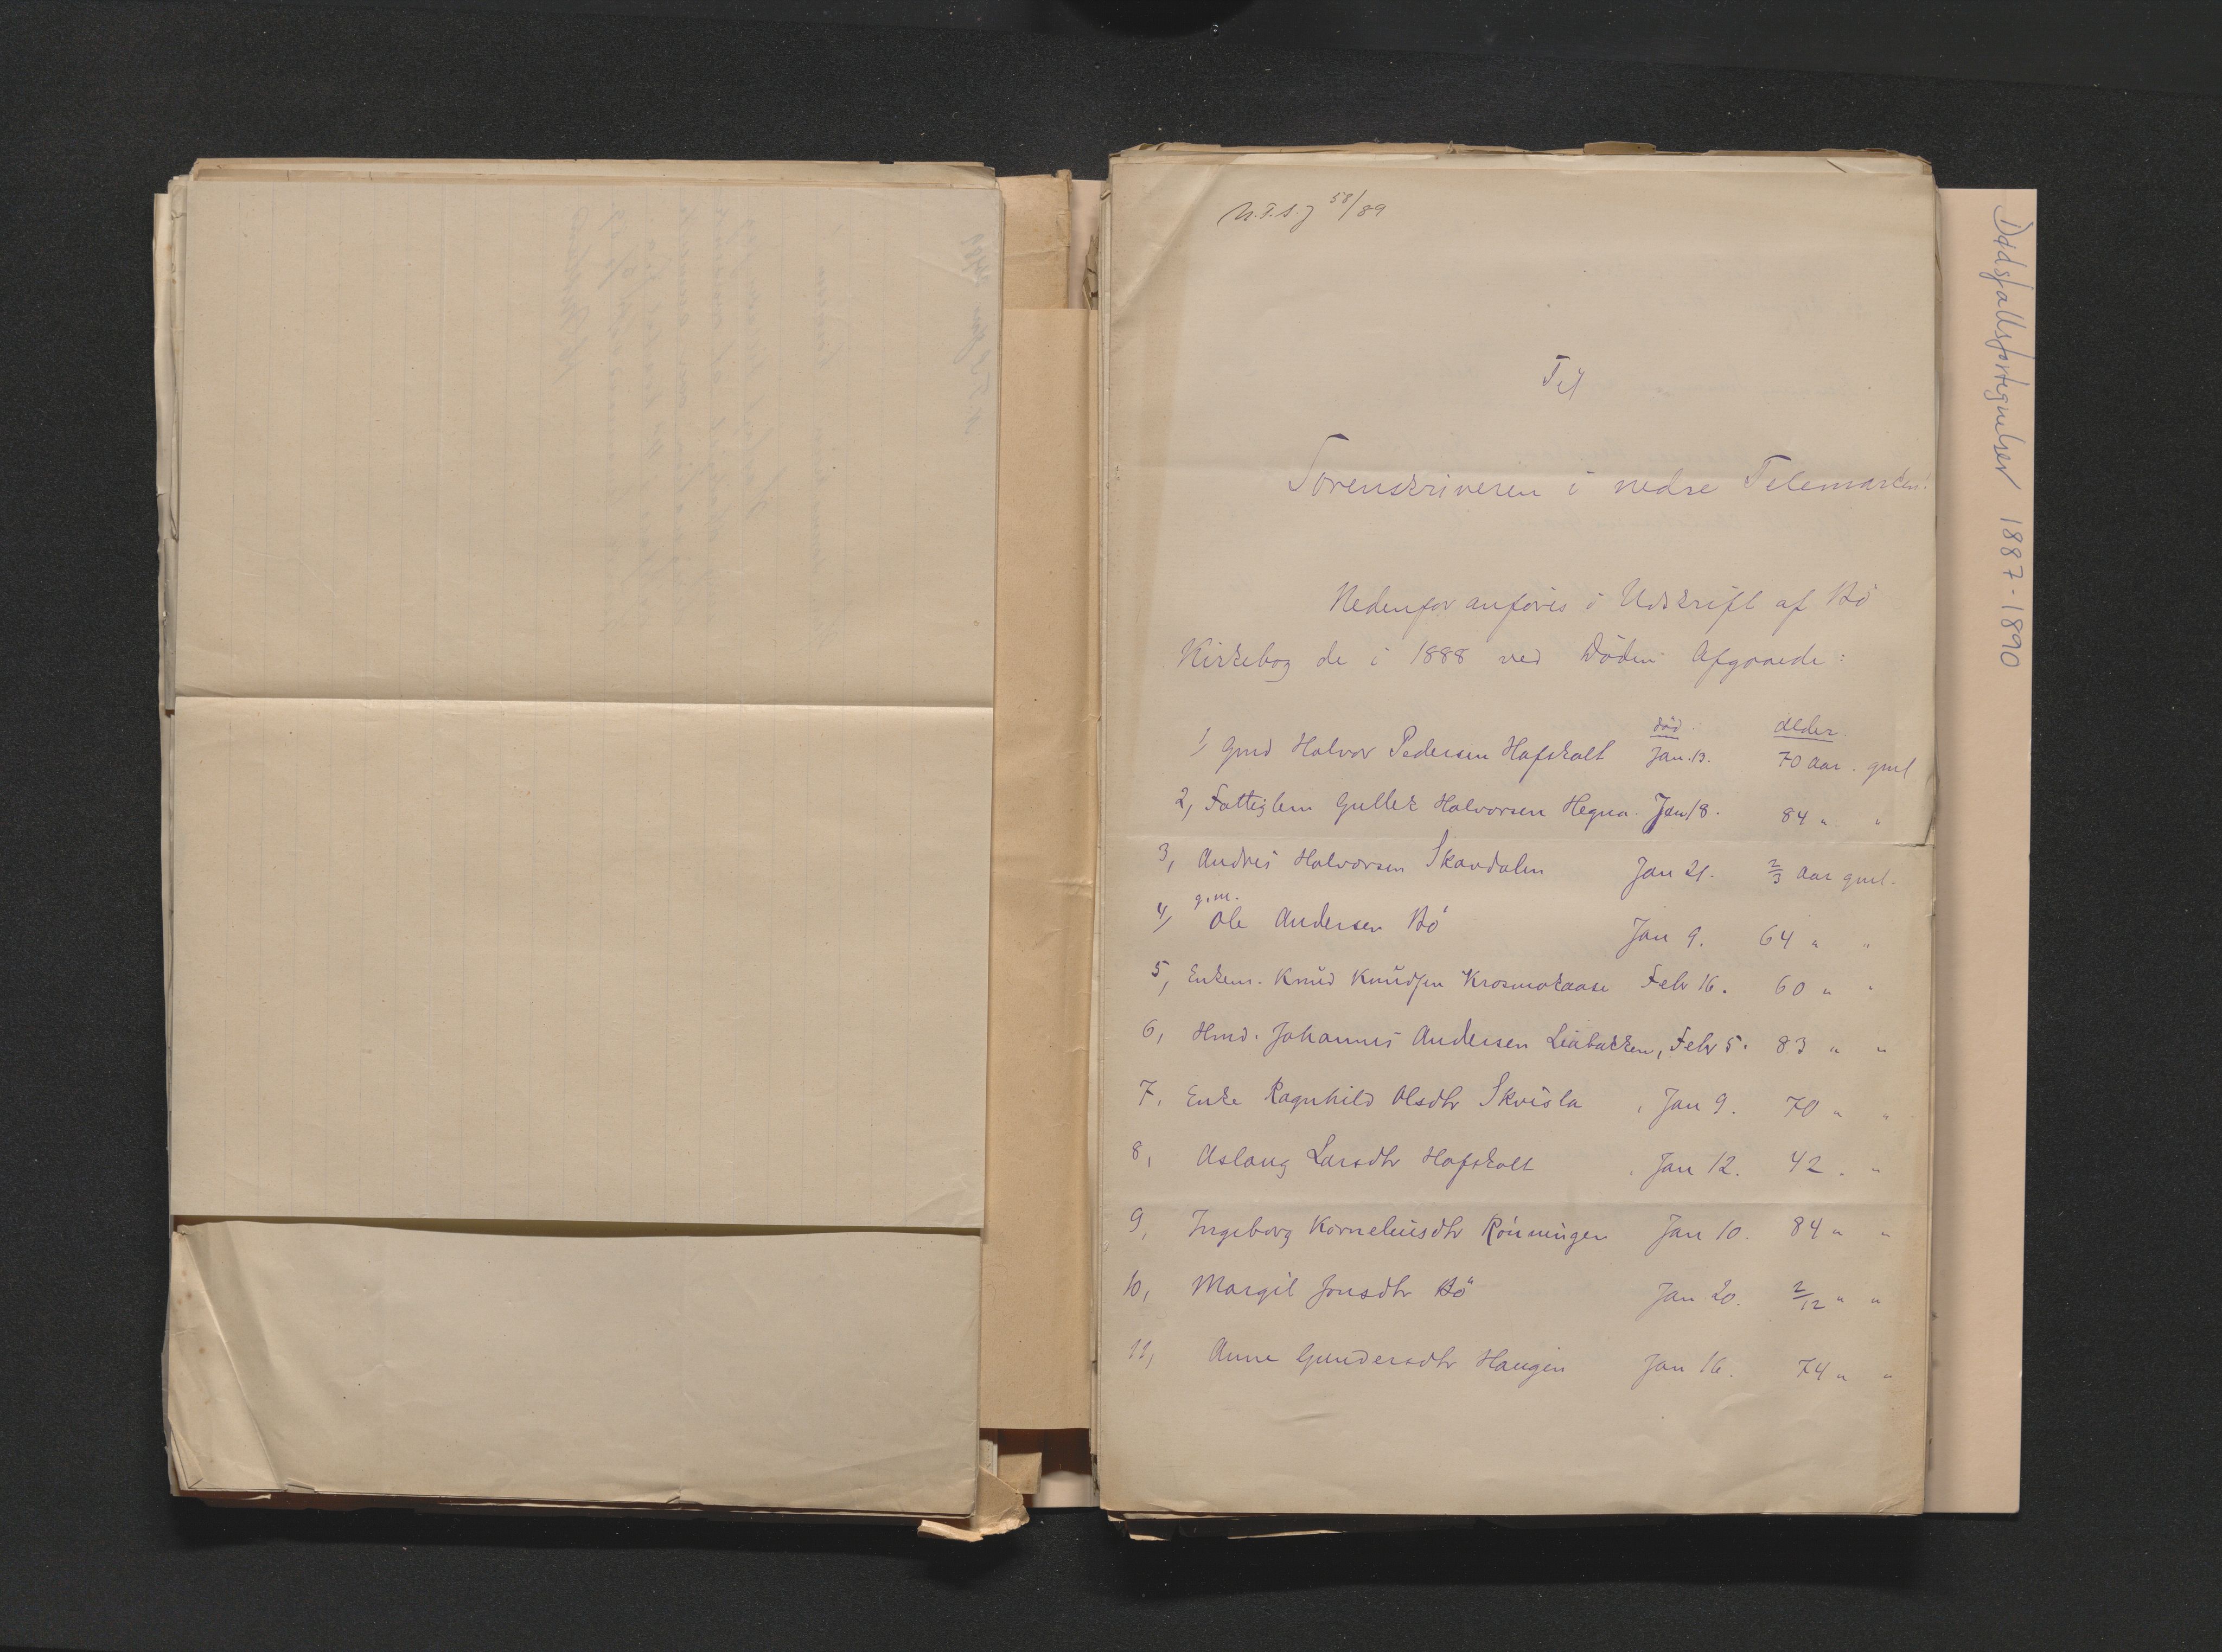 N.T.S.J 58/89
Til
Sorenskriveren i nedre Telemarken!
Nedenfor anføres i Udskrift af Bö
Kirkebog de i 1888 ved Döden Afgaaede:
död: Alder.
1, Gmd Halvor Pedersen Hafskolt Jan. 13. 70 Aar. gml
2, Fattiglem Gullek Halvorsen Hegna. Jan 18. 84 " "
3, Andres Halvorsen Skavdalen Jan 21. 2/3 Aar gml.
4, g.m. Ole Andersen Bö Jan 9. 64 " "
5, Enkem. Knud Knudsen Krosmokaase Febr 16. 60 " "
6, Hmd. Johannes Andersen Liabakken, Febr 5. 83 " "
7, Enke Ragnhild Olsdtr Skvisla, Jan 9. 70 " "
8, Aslaug Larsdtr Hafskolt, Jan 12. 42 " "
9, Ingeborg Korneliusdtr Rönningen Jan 10. 84 " "
10, Margit Jonsdtr Bö Jan 20. 2/12 " "
11, Anne Gundersdtr Haugen Jan 16. 74 " "
Dødsfallsfortegnelser 1887-1890